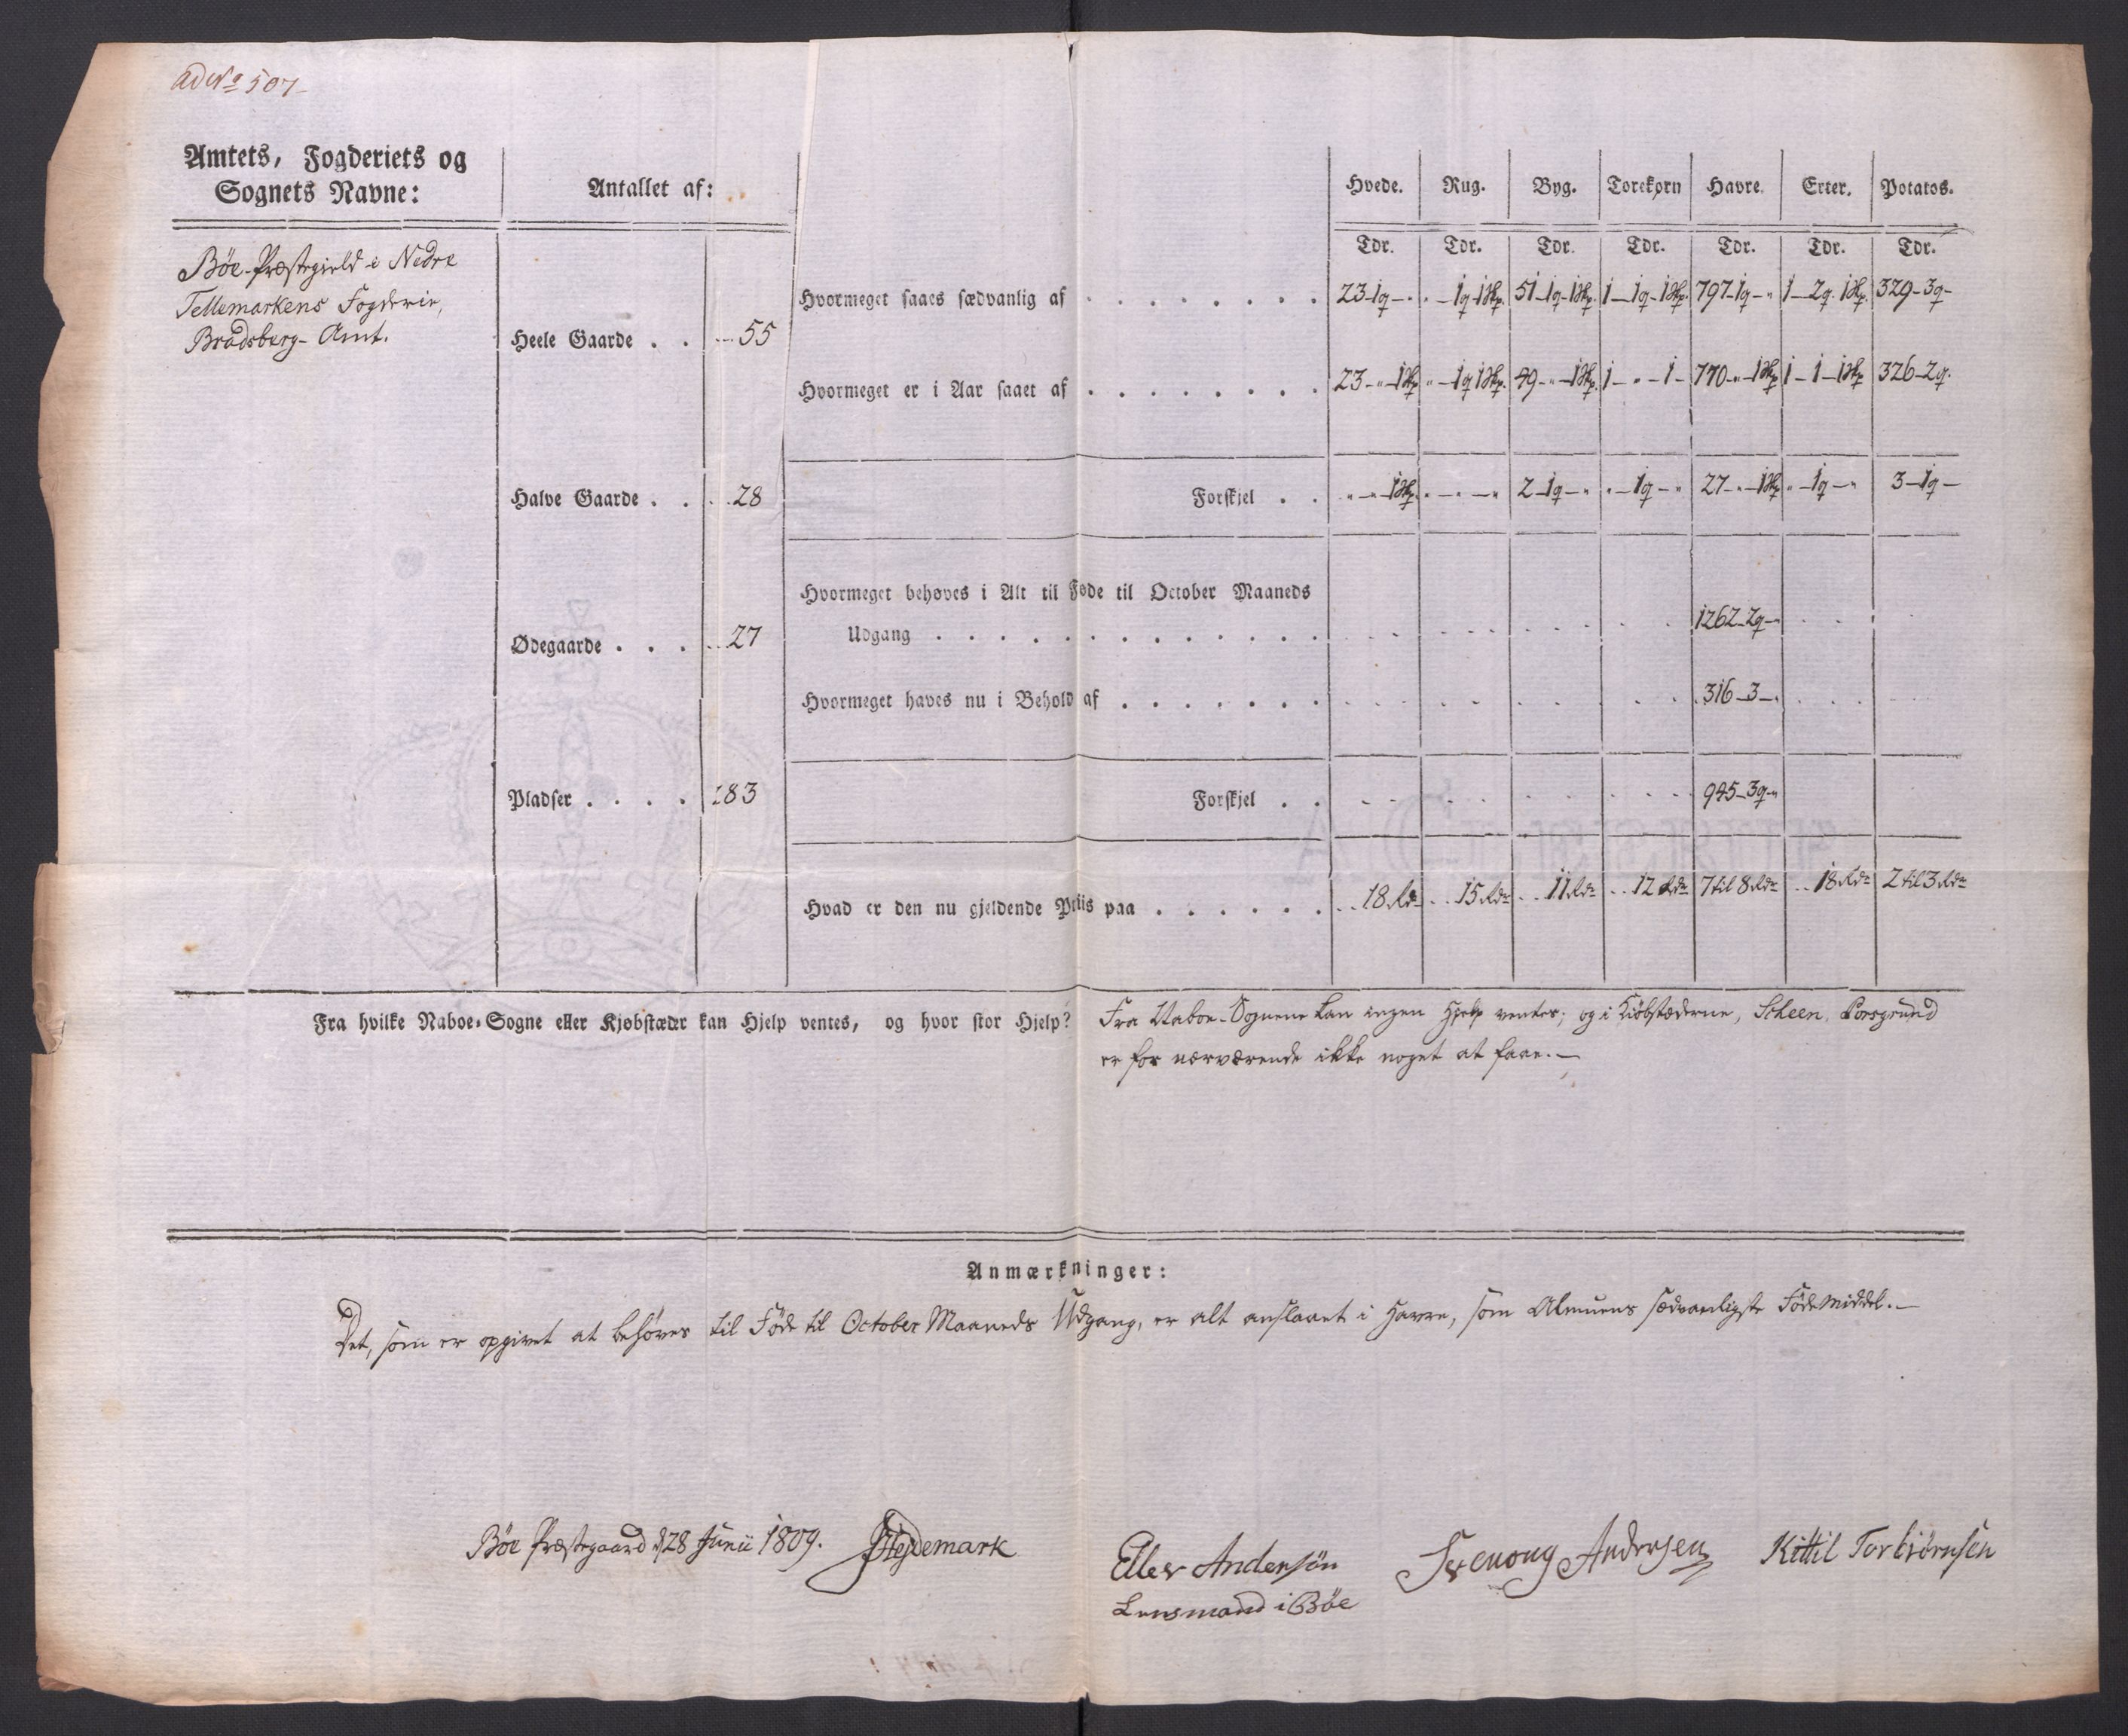 ad No 507
Amtets, Fogderiets og
Sognets Navne:
Antallet af:
Hvede. Rug. Byg. Torekorn Havre. Erter. Potatos.
Tdr. Tdr. Tdr. Tdr. Tdr. Tdr. Tdr.
Bøe Præstegield i Nedre
Tellemarkens Fogderie,
Bradsberg-Amt.
Heele Gaarde . . 55
Halve Gaarde . . 28
Ødegaarde . . . 27
Pladser . . . . 183
Hvormeget saaes sædvanlig af . . . . . . . . 23-1q-" "-1q-1Skp. 51-1q-1Skp. 1-1q-1Skp. 797-1q-" 1-2q-1Skp. 329-3q-
Hvormeget er i Aar saaet af . . . . . . . . 23-"-1Skp "-1q 1Skp. 49-"-1Skp. 1-"-1- 770-"-1Skp 1-1-1Skp 326-2q.
Forskjel . . "-"-1Skp. "-"-" 2-1q-" "-1q-" 27-"-1Skp "-1q-" 3-1q-
Hvormeget behøves i Alt til Føde til October Maaneds
Udgang . . . . . . . . . . . . . 1262-2q-"
Hvormeget haves nu i Behold af . . . . . . . 316-3-"
Forskjel . . 945-3q-"
Hvad er den nu gjeldende Priis paa . . . . . . 18 Rdr 15 Rdr 11 Rdr 12 Rdr 7 til 8 Rdr 18 Rdr 2 til 3 Rdr
Fra hvilke Naboe-Sogne eller Kjøbstæder kan Hjelp ventes, og hvor stor Hjelp? Fra Naboe-Sognene kan ingen Hjelp ventes; og i Kiøbstæderne, Scheen, Porsgrund
er for nærværende ikke noget at faae.-
Anmærkninger:
Det, som er opgivet at behøves til Føde til October Maaneds Udgang, er alt anslaaet i Havre, som Almuens sædvanligste Fødemiddel.-
Bøe Præstegaard d 28 Junii 1809. Hejdemark
Ellev Andersøn
Lensmand i Bøe
Andersen
Kittil Torbiørnsen